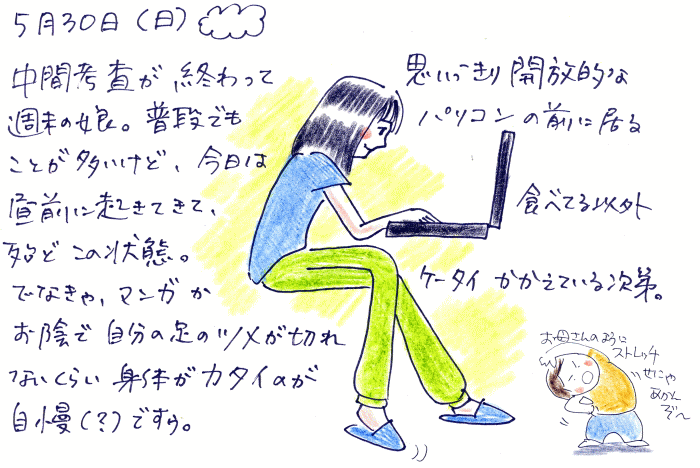 5月30日（日）
中間考査が 終わって 思いっきり 開放的な
週末の娘。普段でも パソコンの前に居る
ことが多いけど、今日は
昼前に起きてきて、食べてる以外
殆ど この状態。
でなきゃ、マンガか ケータイ かかえている次第。
お陰で 自分の足のツメが切れ
ないくらい 身体がカタイのが
自慢(?)ですぅ。
お母さんのように
ストレッチ
せにゃ
あかん
ぞ〜